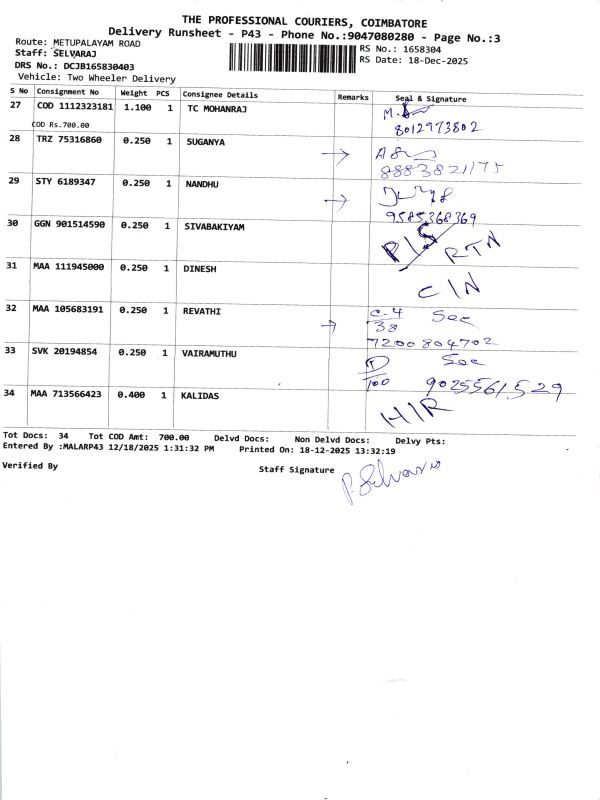 THE PROFESSIONAL COURIERS, COIMBATORE
Delivery Runsheet - P43 - Phone No.:9047080280 - Page No.:3
Route: METUPALAYAM ROAD
RS No.: 1658304
Staff: SELVARAJ
RS Date: 18-Dec-2025
DRS No.: DCJB165830403
Vehicle: Two Wheeler Delivery
S No Consignment No Weight PCS Consignee Details Remarks Seal & Signature
27 COD 1112323181 1.100 1 TC MOHANRAJ
COD Rs.700.00 8012973802
28 TRZ 75316860 0.250 1 SUGANYA →
8883821175
29 STY 6189347 0.250 1 NANDHU →
9585368369
30 GGN 901514590 0.250 1 SIVABAKIYAM P/S RTN
31 MAA 111945000 0.250 1 DINESH C/N
32 MAA 105683191 0.250 1 REVATHI → C-4/38 Soc
7200804702
33 SVK 20194854 0.250 1 VAIRAMUTHU Soc
9025561529
34 MAA 713566423 0.400 1 KALIDAS H/R
Tot Docs: 34 Tot COD Amt: 700.00 Delvd Docs: Non Delvd Docs: Delvy Pts:
Entered By :MALARP43 12/18/2025 1:31:32 PM Printed On: 18-12-2025 13:32:19
Verified By Staff Signature P. Selvaraj